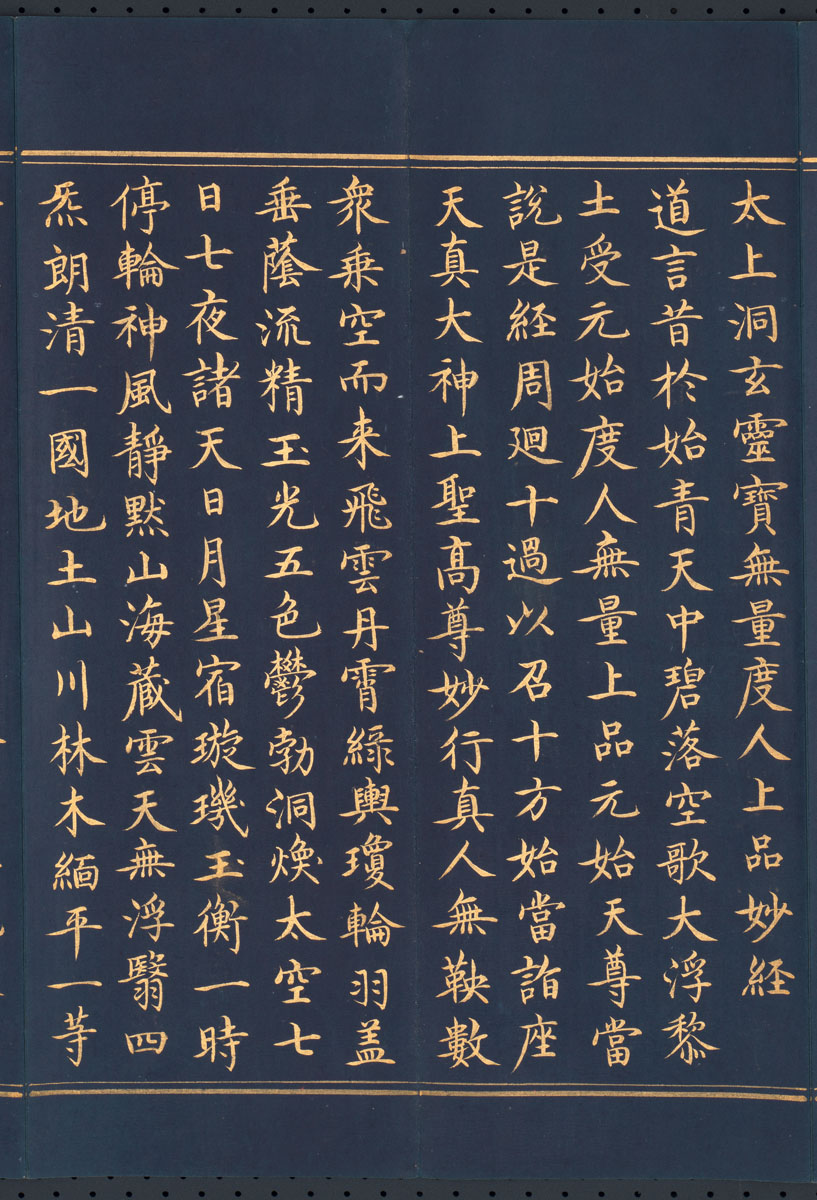 太上洞玄靈寳無量度人上品妙経
道言昔於始青天中碧落空歌大浮黎
土受元始度人無量上品元始天尊當
說是経周廻十過以召十方始當詣座
天真大神上聖高尊妙行真人無鞅數
衆乗空而来飛雲丹霄緑輿瓊輪羽盖
垂蔭流精玉光五色鬱勃洞煥太空七
日七夜諸天日月星宿璇璣玉衡一時
停輪神風靜黙山海蔵雲天無浮翳四
炁朗清一國地土山川林木緬平一等